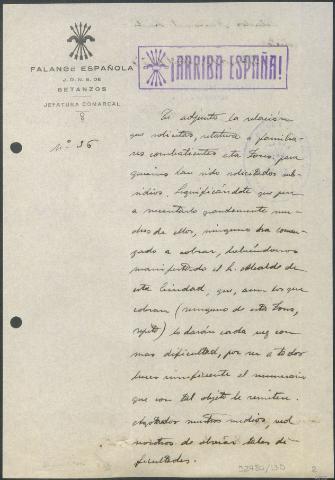 FALANGE ESPAÑOLA
J. O. N. S. DE
BETANZOS
JEFATURA COMARCAL
¡ARRIBA ESPAÑA!
Nº 36
Te adjunto la relación
que solicitas, relativa a familia-
res combatientes esta Zona, para
quienes han sido solicitados sub-
sidios. Significándote que pese
a necesitarlo grandemente mu-
chos de ellos, ninguno ha comen-
zado a cobrar, habiéndonos
manifestado el Sr. Alcalde de
esta Ciudad, que, aun los que
cobran (ninguno de esta Zona,
repito) lo darán cada vez con
mas dificultad, por ser a todas
luces insuficiente el numerario
que con tal objeto le remiten.
Agotados nuestros medios, ved
vosotros de obviar tales di-
ficultades.
2